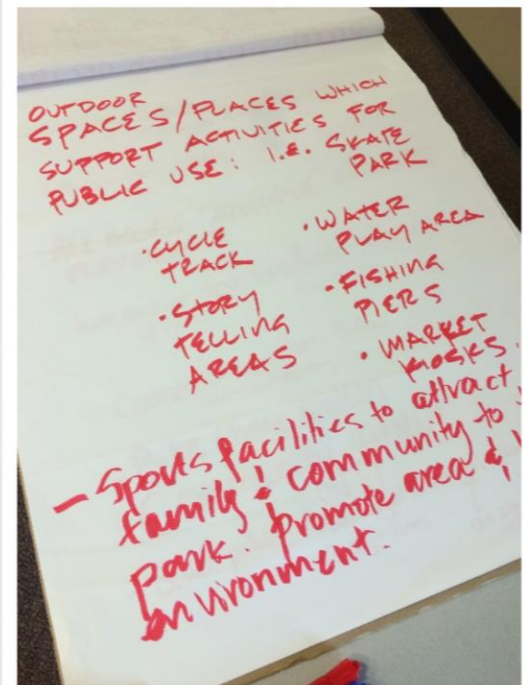 OUTDOOR
SPACES/PLACES WHICH
SUPPORT ACTIVITIES FOR
PUBLIC USE: I.E. SKATE
PARK
· CYCLE
TRACK
· STORY
TELLING
AREAS
· WATER
PLAY AREA
· FISHING
PIERS
· MARKET
KIOSKS
- Sports facilities to attract
family & community to
park. Promote area &
environment.